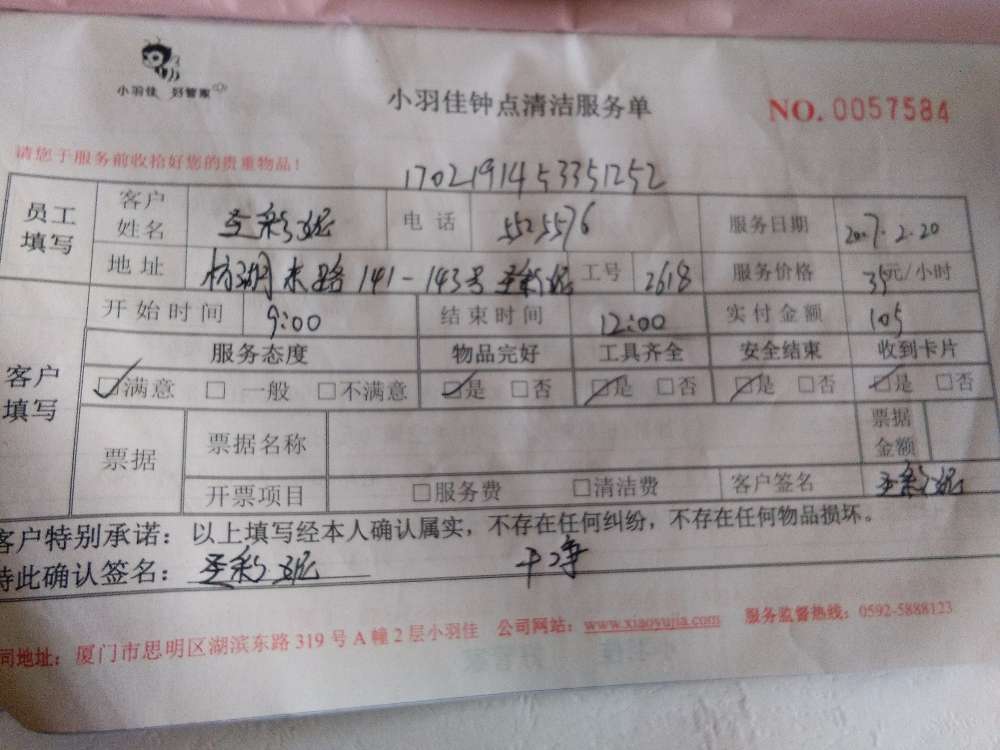 小羽佳 好管家
小羽佳钟点清洁服务单
NO. 0057584
请您于服务前收拾好您的贵重物品！
1702191453351252
员工填写 客户姓名 王彩妮 电话 5525576 服务日期 2017.2.20
地址 杭湖东路141-143号 王彩妮 工号 2618 服务价格 35元/小时
客户填写 开始时间 9:00 结束时间 12:00 实付金额 105
服务态度 物品完好 工具齐全 安全结束 收到卡片
☑满意 □一般 □不满意 ☑是 □否 ☑是 □否 ☑是 □否 ☑是 □否
票据 票据名称 票据金额
开票项目 □服务费 □清洁费 客户签名 王彩妮
客户特别承诺：以上填写经本人确认属实，不存在任何纠纷，不存在任何物品损坏。
特此确认签名：王彩妮 干净
司地址：厦门市思明区湖滨东路319号A幢2层小羽佳 公司网站：www.xiaoyujia.com 服务监督热线：0592-5888123